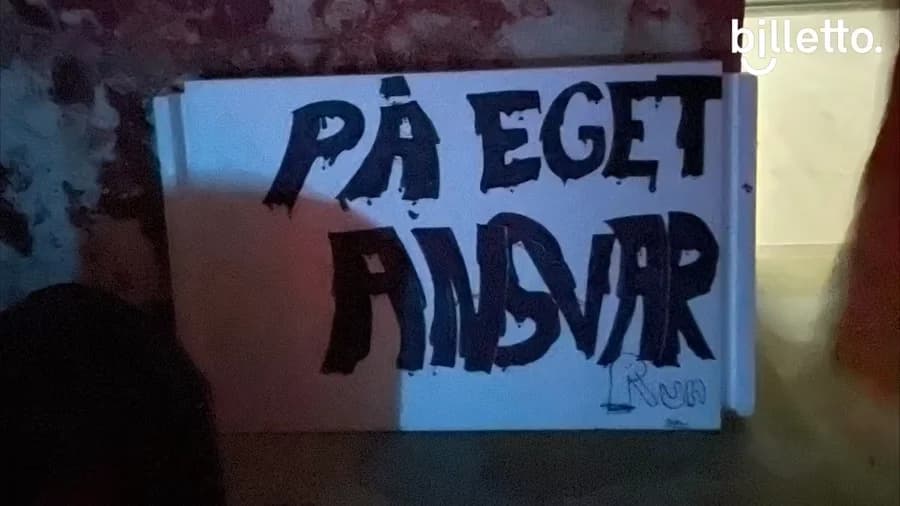 billetto.
PÅ EGET
ANSVAR